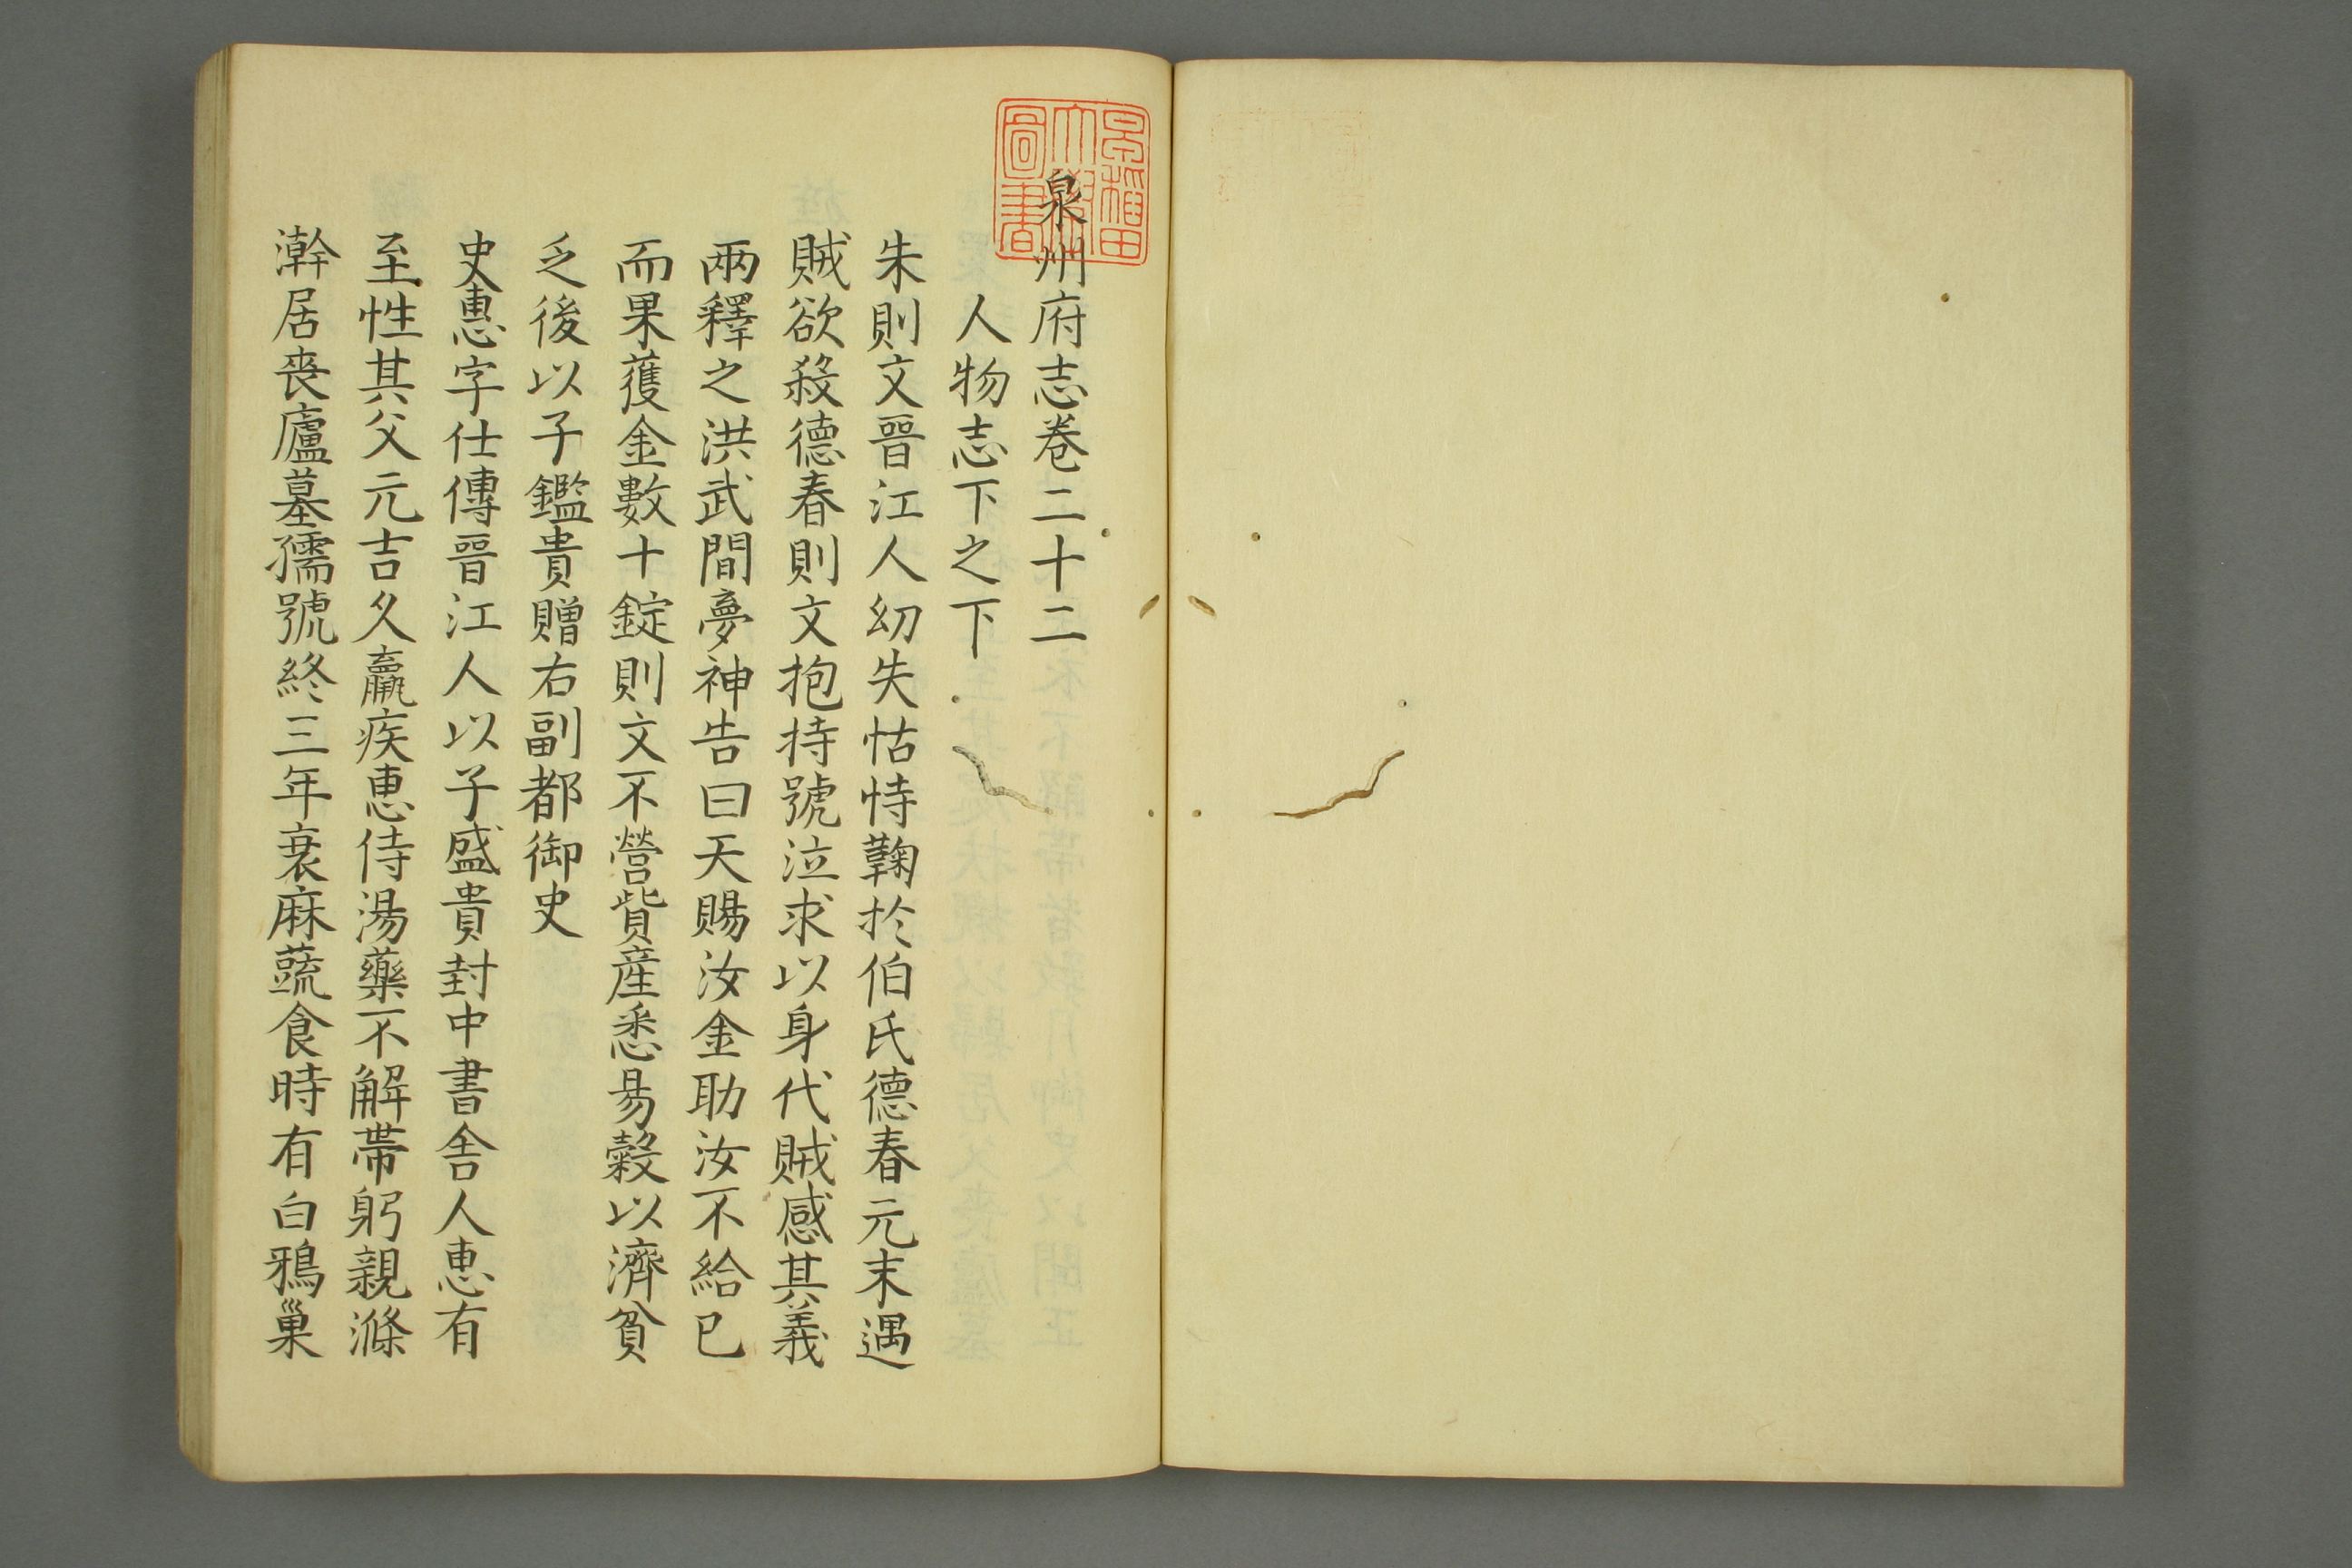 泉州府志卷二十二
人物志下之下
朱則文晉江人幼失怙恃鞠於伯氏德春元末遇
賊欲殺德春則文抱持號泣求以身代賊感其義
兩釋之洪武間夢神告曰天賜汝金助汝不給已
而果獲金數十錠則文不營貲産悉易穀以濟貧
乏後以子鑑貴贈右副都御史
史惠字仕傳晉江人以子盛貴封中書舍人惠有
至性其父元吉久羸疾惠侍湯藥不解帶躬親滌
澣居喪廬墓孺號終三年衰麻蔬食時有白鴉巢
早稻田
大學
圖書